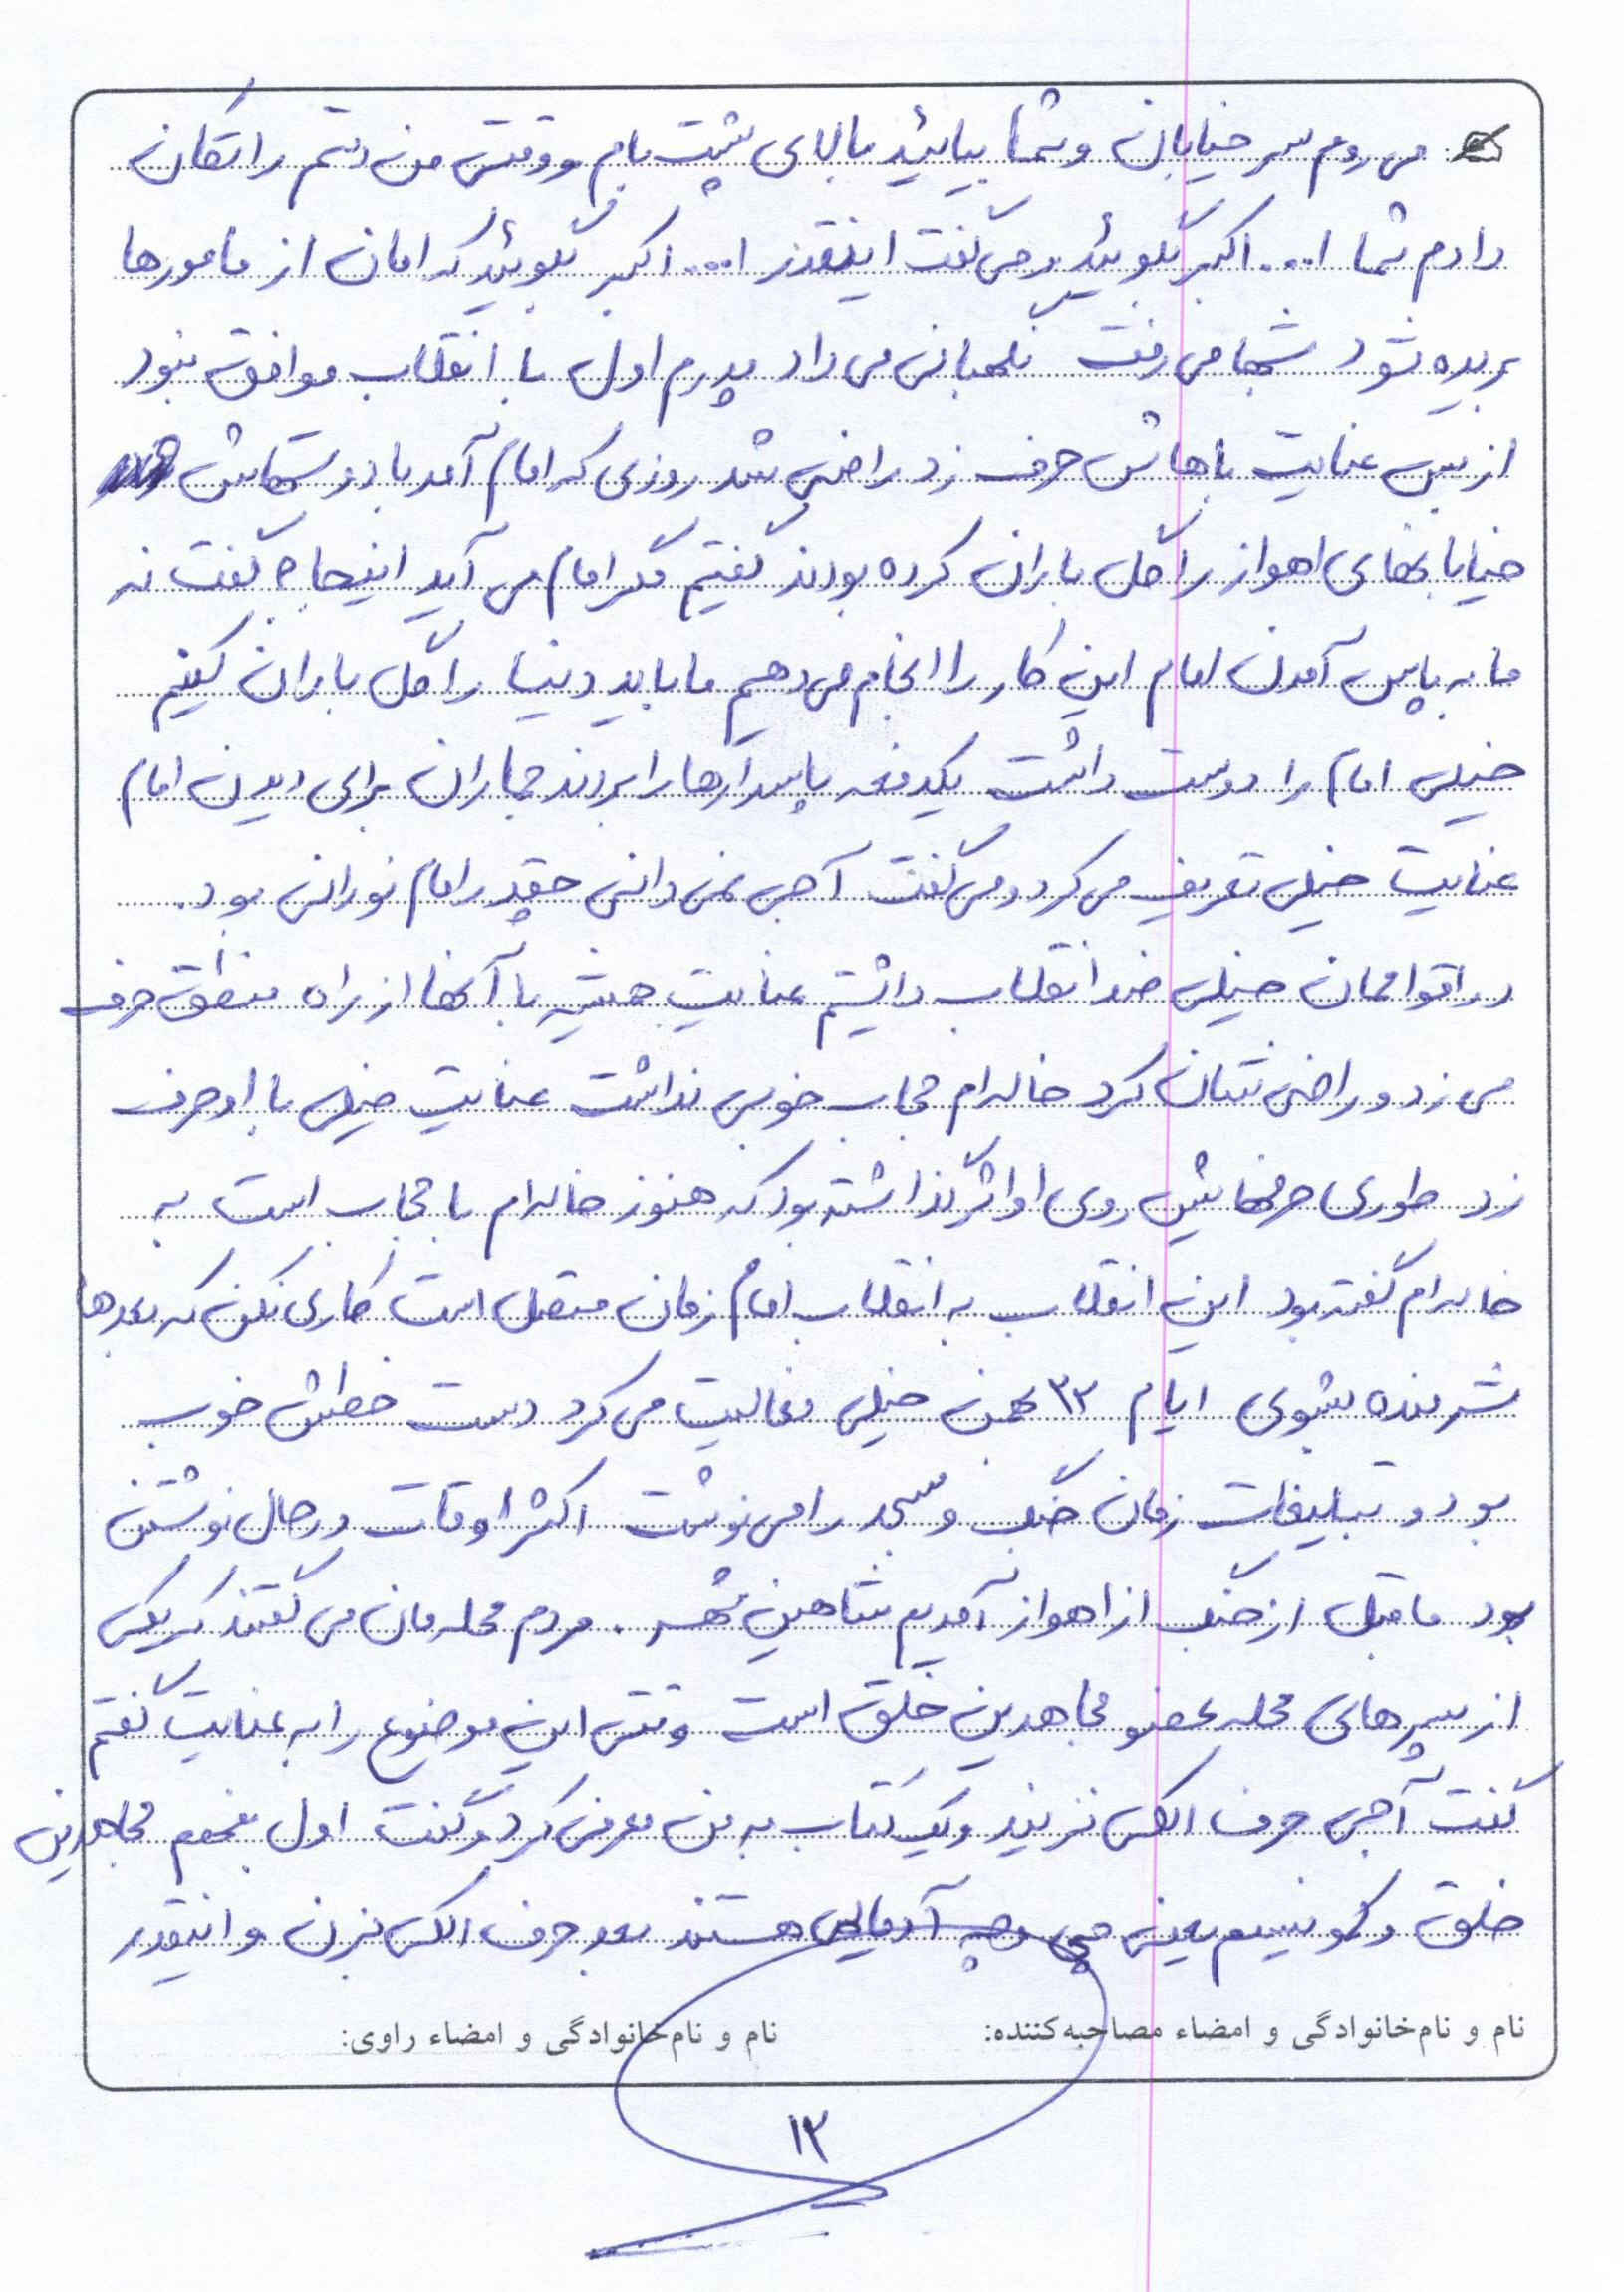 می روم سر خیابان و شما بیائید بالای پشت بام و وقتی من دستم را تکان
دادم شما ا... اکبر بگوئید و می گفت اینقدر ا... اکبر بگوئید که امان از مامورها
بریده شود شبها می رفت نگهبانی می داد پدرم اول با انقلاب موافق نبود
از بس عنایت باهاش حرف زد راضی شد روزی که امام آمد با دوستانش
خیابانهای اهواز را گل باران کرده بودند گفتیم مگر امام می آید اینجا؟ گفت نه
ما به پاس آمدن امام این کار را انجام می دهیم ما باید دنیا را گل باران کنیم
خیلی امام را دوست داشت یکدفعه پاسدارها را بردند جماران برای دیدن امام
عنایت خیلی تعریف می کرد و می گفت آجی نمی دانی چقدر امام نورانی بود.
در اقواممان خیلی ضد انقلاب داشتیم عنایت همیشه با آنها از راه منطق حرف
می زد و راضی شان کرد خاله ام حجاب خوبی نداشت عنایت خیلی با او حرف
زد طوری حرفهایش روی او اثر گذاشته بود که هنوز خاله ام با حجاب است به
خاله ام گفته بود این انقلاب به انقلاب امام زمان متصل است کاری نکن که بعدها
شرمنده بشوی ایام ۲۲ بهمن خیلی فعالیت می کرد دست خطش خوب
بود و تبلیغات زمان جنگ و مسجد را می نوشت اکثر اوقات در حال نوشتن
بود ما قبل از جنگ از اهواز آمدیم شاهین شهر. مردم محله مان می گفتند که یکی
از پسرهای محله عضو مجاهدین خلق است وقتی این موضوع را به عنایت گفتم
گفت آجی حرف الکی نزنید و یک کتاب به من معرفی کرد و گفت اول بفهم مجاهدین
خلق و کمونیسم یعنی چی و چه آدمایی هستند بعد حرف الکی بزن و اینقدر
نام و نام‌خانوادگی و امضاء مصاحبه‌کننده: نام و نام‌خانوادگی و امضاء راوی:
۱۳